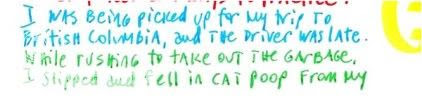 I WAS BEiNG picked up for My trip To
BritisH ColuMbiA, and THE Driver WAS LATE.
WHile rusHiNG to tAKE OUT THE GARBAGE,
I Slipped and fell in CAT poop From My